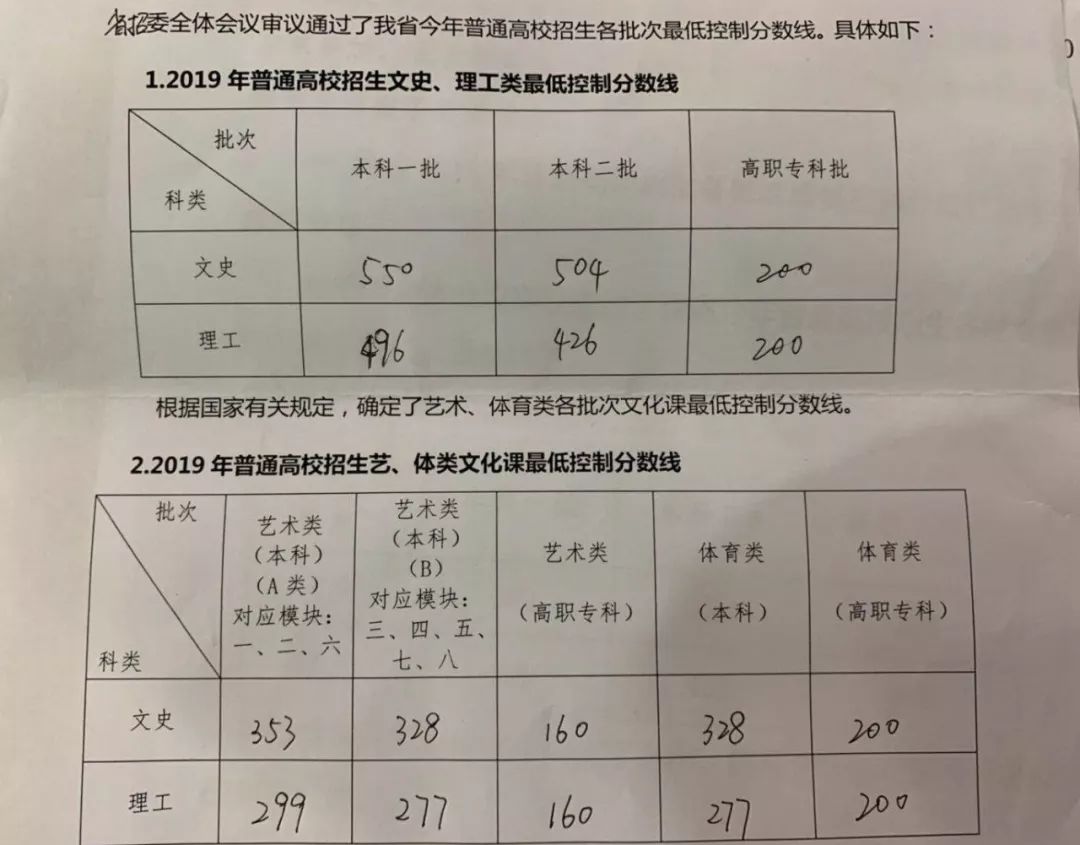 省招委全体会议审议通过了我省今年普通高校招生各批次最低控制分数线。具体如下：
1.2019 年普通高校招生文史、理工类最低控制分数线
批次
科类
本科一批
本科二批
高职专科批
文史
550
504
200
理工
496
426
200
根据国家有关规定，确定了艺术、体育类各批次文化课最低控制分数线。
2.2019 年普通高校招生艺、体类文化课最低控制分数线
批次
科类
艺术类
（本科）
（A 类）
对应模块：
一、二、六
艺术类
（本科）
（B）
对应模块：
三、四、五、
七、八
艺术类
（高职专科）
体育类
（本科）
体育类
（高职专科）
文史
353
328
160
328
200
理工
299
277
160
277
200